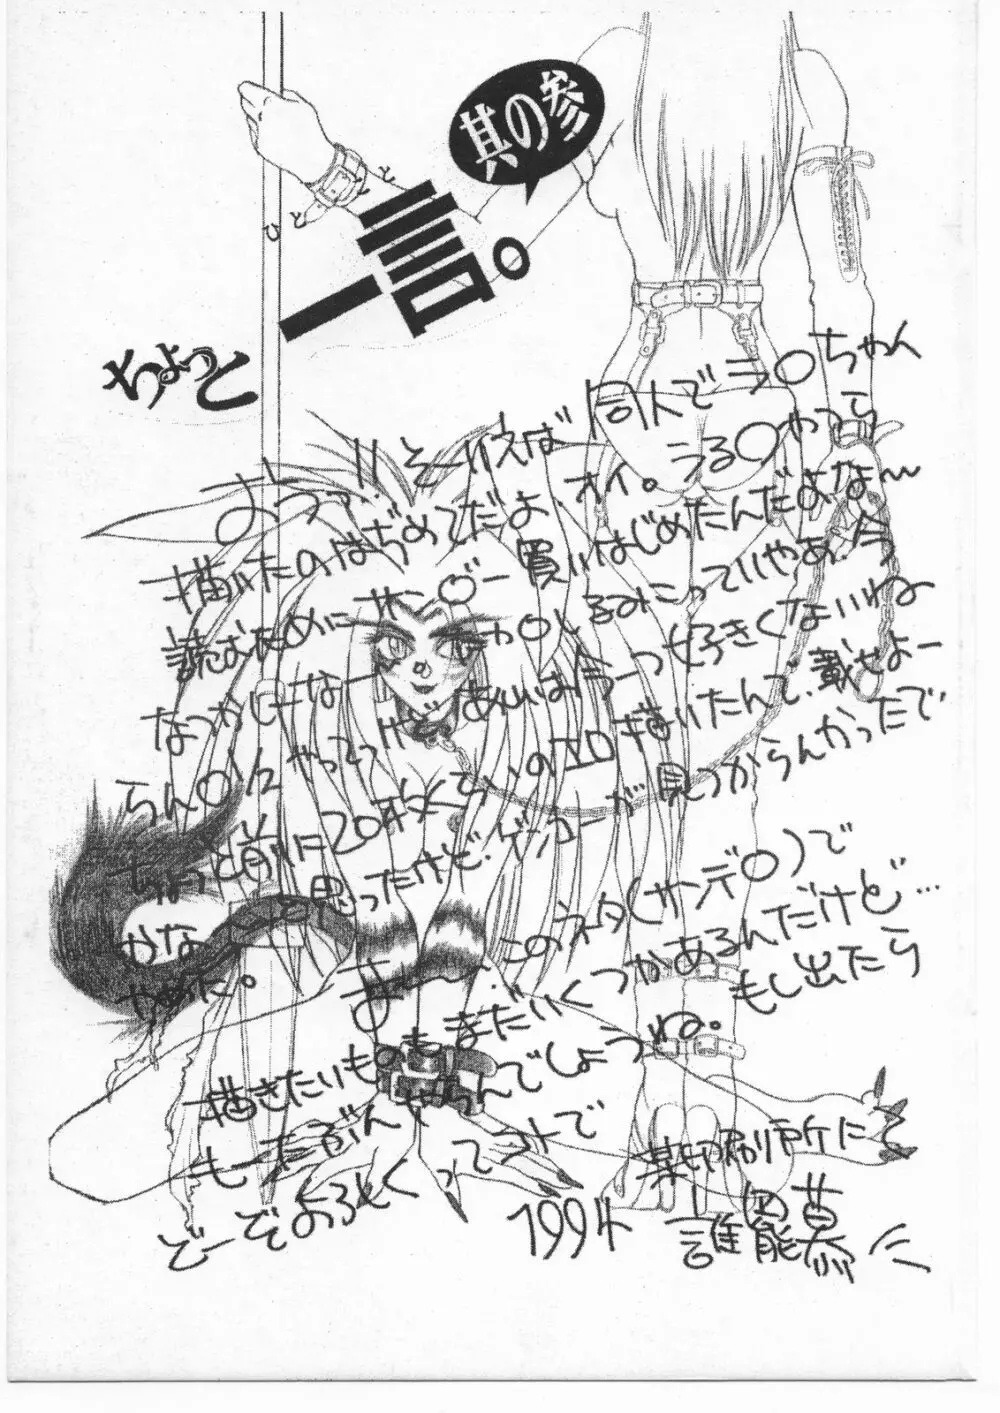 其の参
ちょっと
一言。
ひとこと
おうっ!! そーいえば 同人でラ○ちゃん
描いたのはぢめてだよ オイ。うる○やつら
読むために サ○デー買いはじめたんだよな〜
なつかしーなー とるみこっていやぁ、今
らん○1/2 やってっけど あしゃあ うーっ 好きくないわね
ちょっと前に20枚くらいのエロ描いたんで、載せよー
かな と思ったけど、ゲンコーが見つからんかったで
やめた。
まー、このネタ(サンデ○)で
描きたいものもまだいくつかあるんだけど…
もーたぶんやらんでしょうね。もし出たら
どーぞよろしくってコトで
1994
印刷所にて